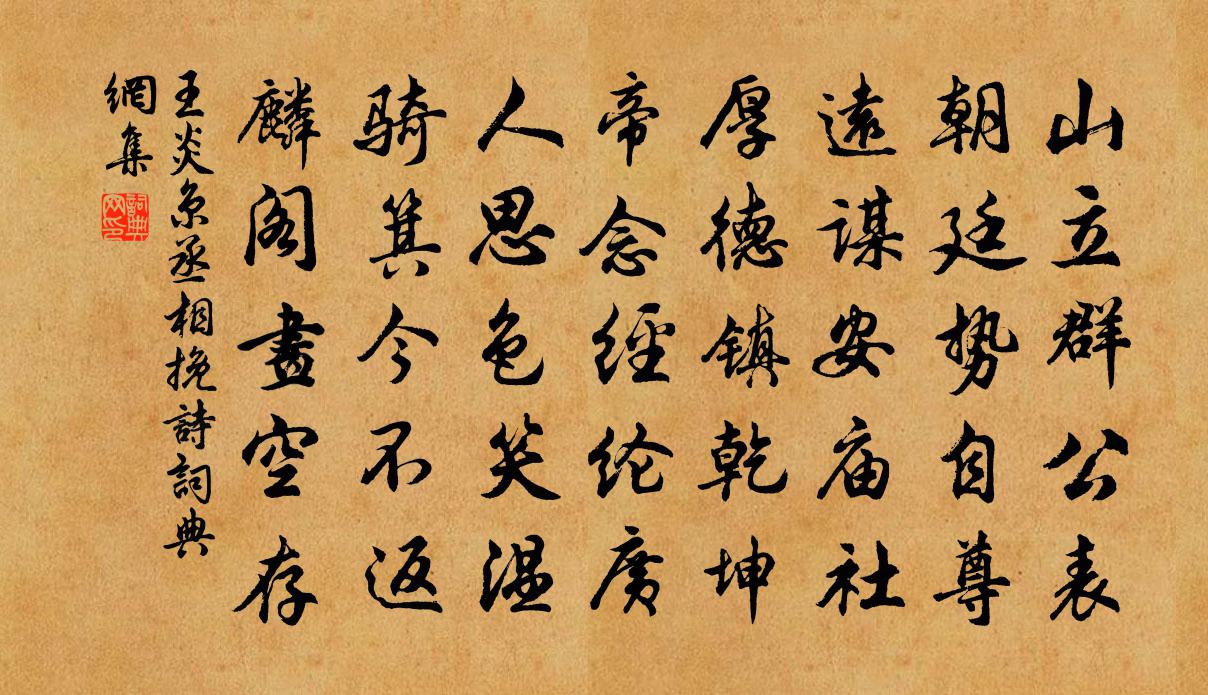 山立群公表
朝廷势自尊
遠謀安庙社
厚德镇乾坤
帝念經纶废
人思色笑温
骑箕今不返
麟阁畫空存
王炎京丞相挽詩詞典
網集
詞典网印